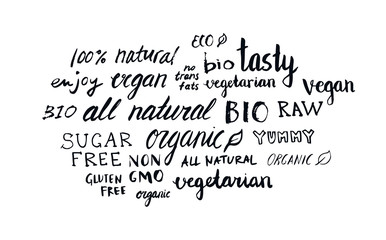 ECO
100% natural no trans fats bio tasty
enjoy vegan vegetarian vegan
BIO all natural BIO RAW
SUGAR FREE organic YUMMY
NON GMO ALL NATURAL ORGANIC
GLUTEN FREE organic vegetarian